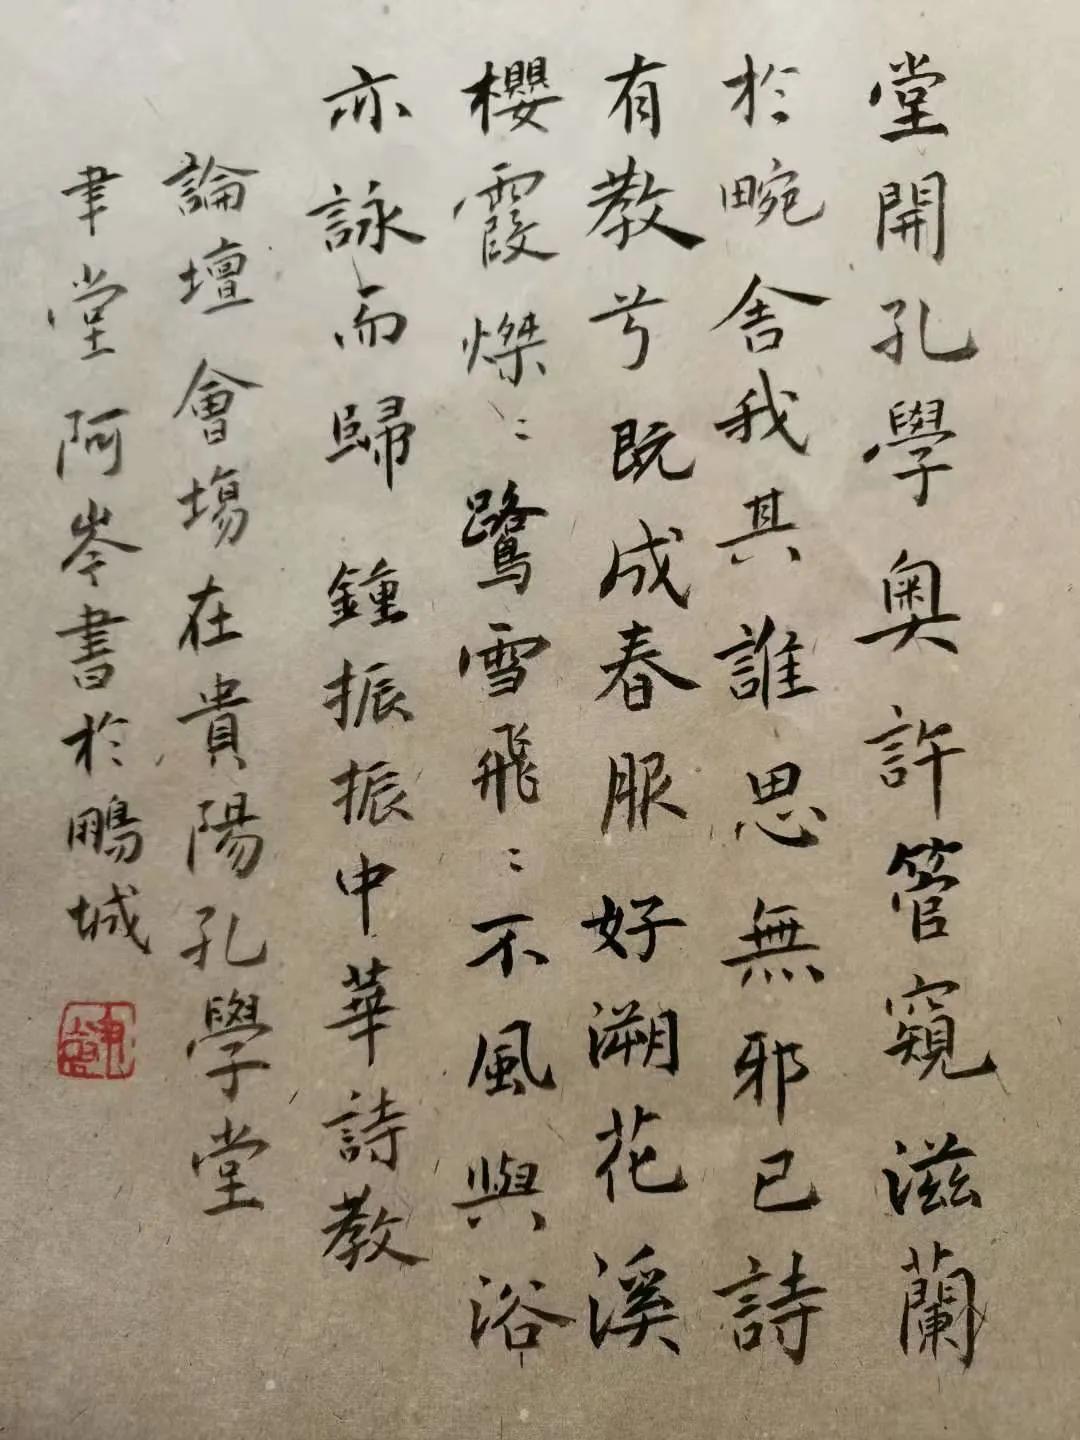 堂開孔學奧許管窺滋蘭
於畹舍我其誰思無邪已詩
有教兮既成春服好溯花溪
櫻霞燦〻鷺雪飛〻不風與浴
亦詠而歸 鍾振振中華詩教
論壇會場在貴陽孔學堂
聿堂阿岑書於鵬城